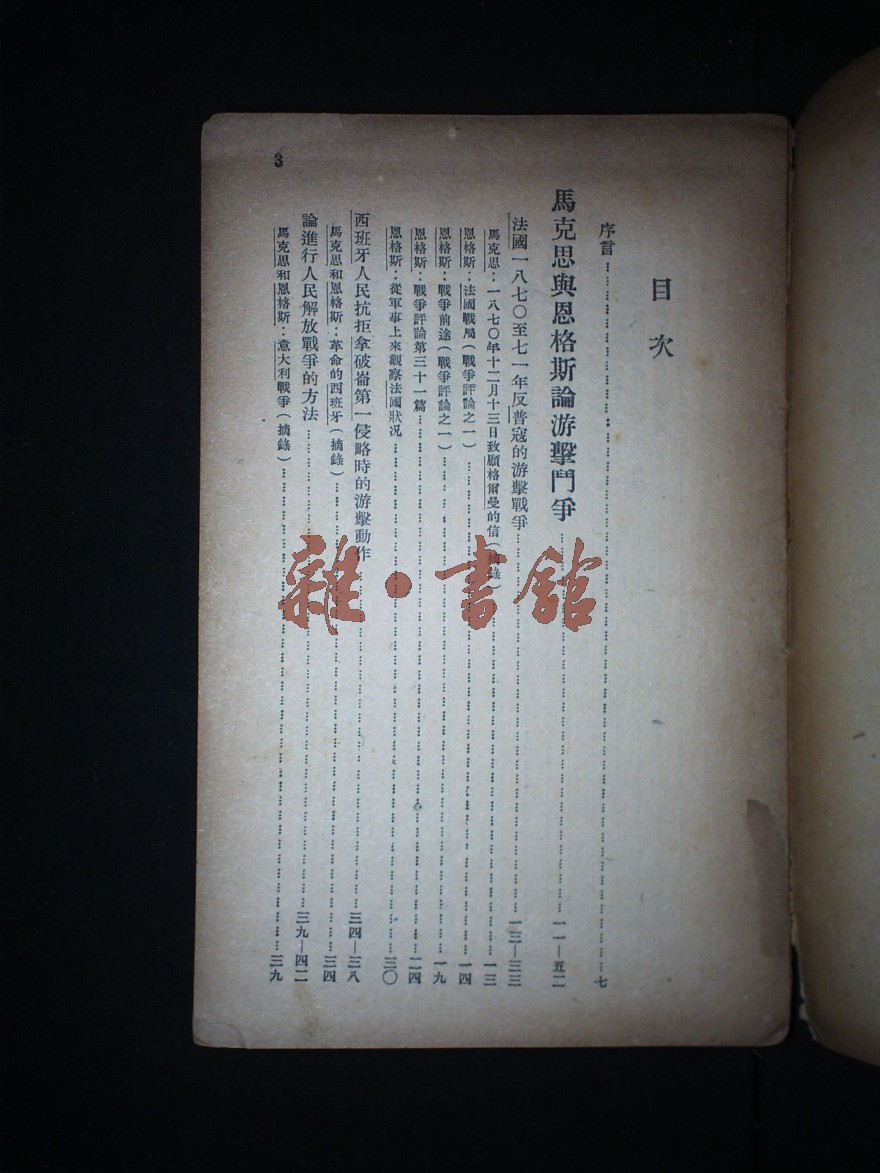 目次
序言……七
馬克思與恩格斯論游擊鬥爭……一一—五二
法國一八七〇至七一年反普寇的游擊戰爭……一三—三三
馬克思：一八七〇年十二月十三日致顧格爾曼的信（摘錄）……一三
恩格斯：法國戰局（戰爭評論之一）……一四
恩格斯：戰爭前途（戰爭評論之一）……一九
恩格斯：戰爭評論第三十一篇……二四
恩格斯：從軍事上來觀察法國狀況……三〇
西班牙人民抗拒拿破崙第一侵略時的游擊動作……三四—三八
馬克思和恩格斯：革命的西班牙（摘錄）……三四
論進行人民解放戰爭的方法……三九—四二
馬克思和恩格斯：意大利戰爭（摘錄）……三九
3
雜·書館